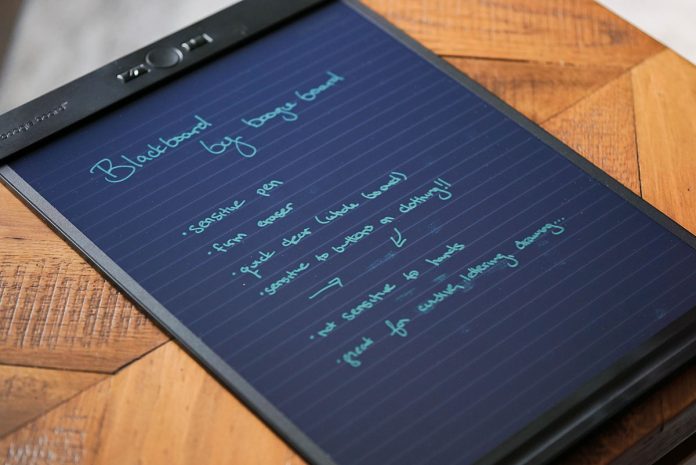 Blackboard
by boogie board
·sensitive pen
·firm eraser
·quick clear (whole board)
·sensitive to buttons on clothing!!
·not sensitive to hands
·great for cursive, lettering, drawing...